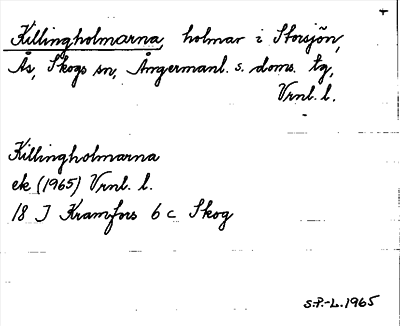 Killingholmarna, holmar i Storsjön,
Ås, Skogs sn, Ångermanl. s. doms. tg,
Vrnl. l.
Killingholmarna
ek (1965) Vrnl. l.
18 J Kramfors 6 c Skog
S.P.-L. 1965